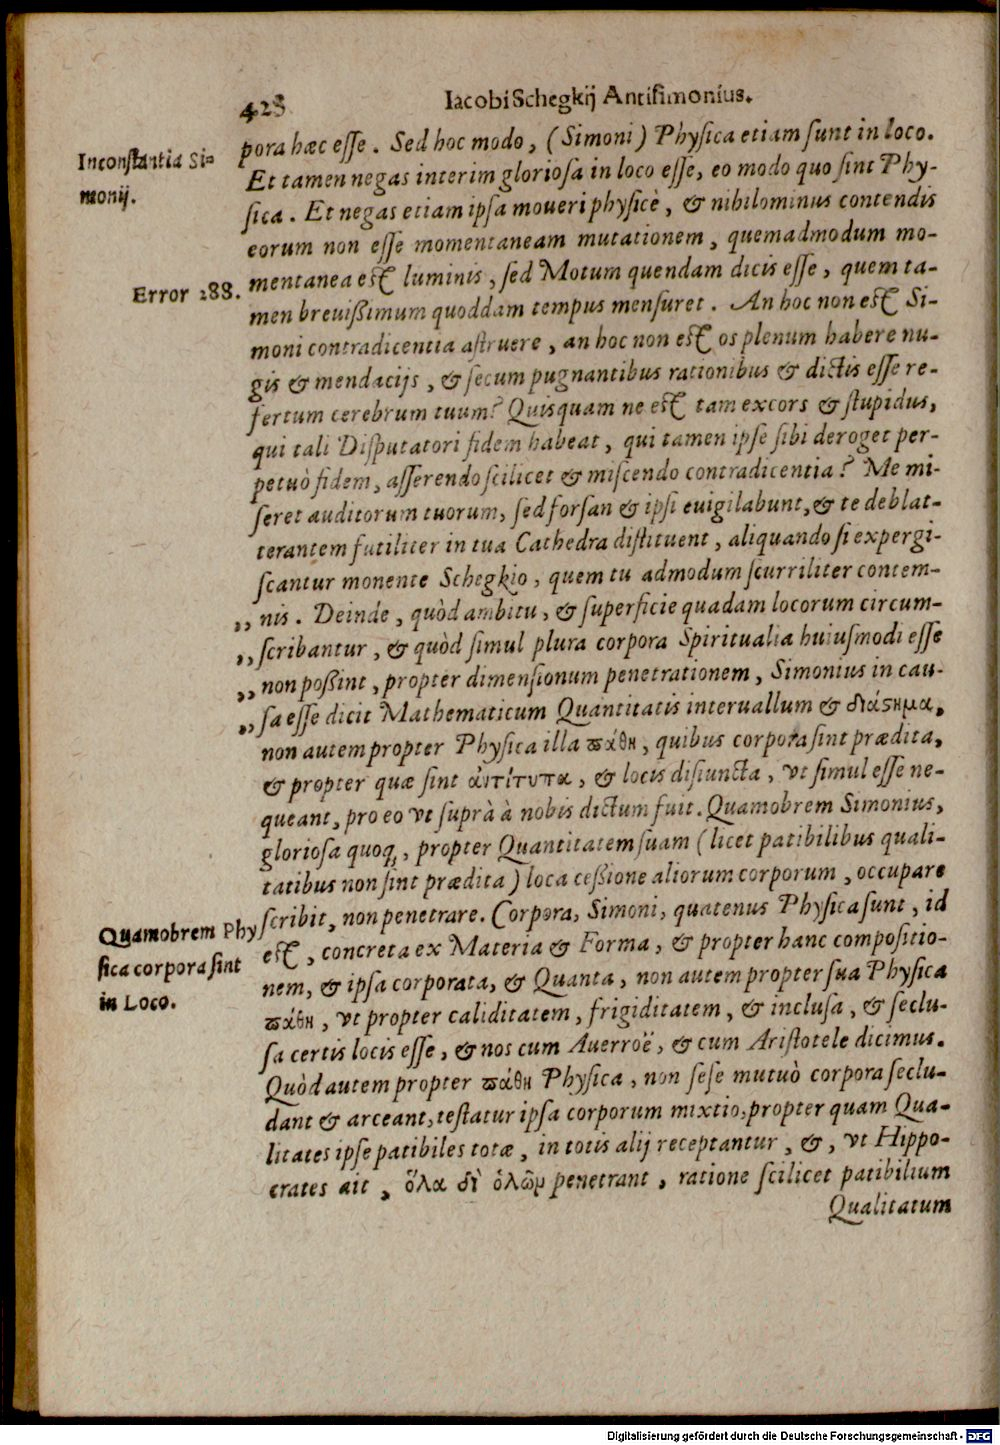 428
Iacobi Schegkij Antisimonius.
pora hæc esse. Sed hoc modo, (Simoni) Physica etiam sunt in loco.
Inconstantia Si=
monij.
Et tamen negas interim gloriosa in loco esse, eo modo quo sint Phy-
sica. Et negas etiam ipsa moueri physicè, & nihilominus contendis
eorum non esse momentaneam mutationem, quemadmodum mo-
Error 288.
mentanea est luminis, sed Motum quendam dicis esse, quem ta-
men breuißimum quoddam tempus mensuret. An hoc non est Si-
moni contradicentia astruere, an hoc non est os plenum habere nu-
gis & mendacijs, & secum pugnantibus rationibus & dictis esse re-
fertum cerebrum tuum? Quisquam ne est tam excors & stupidus,
qui tali Disputatori fidem habeat, qui tamen ipse sibi deroget per-
petuò fidem, asserendo scilicet & miscendo contradicentia? Me mi-
seret auditorum tuorum, sed forsan & ipsi euigilabunt, & te deblat-
terantem futiliter in tua Cathedra distituent, aliquando si expergi-
scantur monente Schegkio, quem tu admodum scurriliter contem-
,, nis. Deinde, quòd ambitu, & superficie quadam locorum circum-
,, scribantur, & quòd simul plura corpora Spiritualia huiusmodi esse
,, non poßint, propter dimensionum penetrationem, Simonius in cau-
,, sa esse dicit Mathematicum Quantitatis interuallum & διάςημα,
non autem propter Physica illa ϖάθη, quibus corpora sint prædita,
& propter quæ sint ἀντίτυπα, & locis disiuncta, vt simul esse ne-
queant, pro eo vt suprà à nobis dictum fuit. Quamobrem Simonius,
gloriosa quoq;, propter Quantitatem suam (licet patibilibus quali-
tatibus non sint prædita) loca ceßione aliorum corporum, occupare
scribit, non penetrare. Corpora, Simoni, quatenus Physica sunt, id
Quamobrem Phy
sica corpora sint
in Loco.
est, concreta ex Materia & Forma, & propter hanc compositio-
nem, & ipsa corporata, & Quanta, non autem propter sua Physica
ϖάθη, vt propter caliditatem, frigiditatem, & inclusa, & seclu-
sa certis locis esse, & nos cum Auerroë, & cum Aristotele dicimus.
Quòd autem propter ϖάθη Physica, non sese mutuò corpora seclu-
dant & arceant, testatur ipsa corporum mixtio, propter quam Qua-
litates ipse patibiles totæ, in totis alij receptantur, &, vt Hippo-
crates ait, ὅλα δὶ ὁλῶμ penetrant, ratione scilicet patibilium
Qualitatum
Digitalisierung gefördert durch die Deutsche Forschungsgemeinschaft - DFG